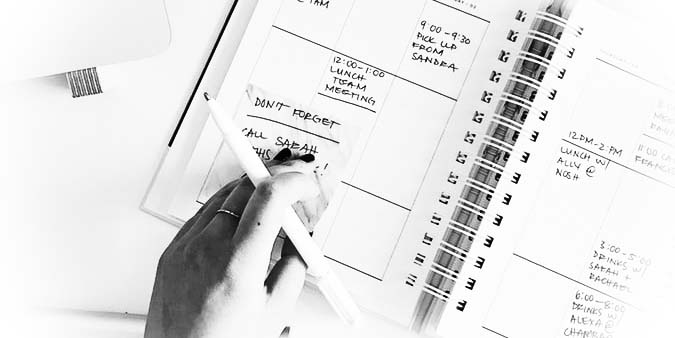 9:00-9:30
PICK UP
FROM
SANDRA
12:00-1:00
LUNCH
TEAM
MEETING
DON'T FORGET
CALL SARAH
12PM-2PM
LUNCH W/
ALLY @
NOSH
11:00
3:00-5:00
DRINKS W/
SARAH +
RACHAEL
6:00-8:00
DRINKS W/
ALEXA @